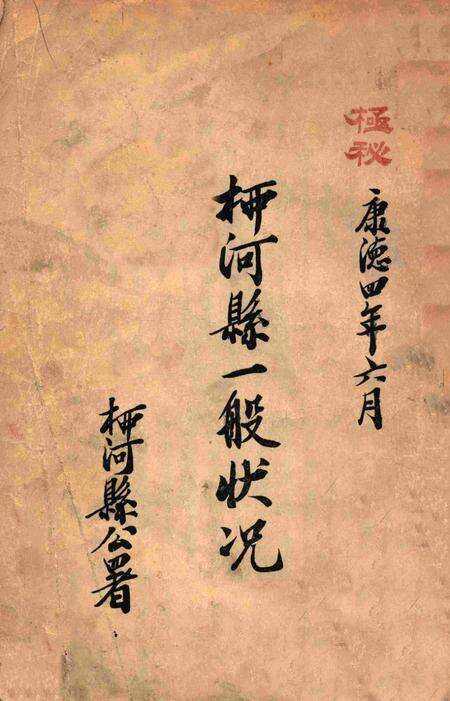 極秘
康徳四年六月
柳河縣一般状况
柳河縣公署